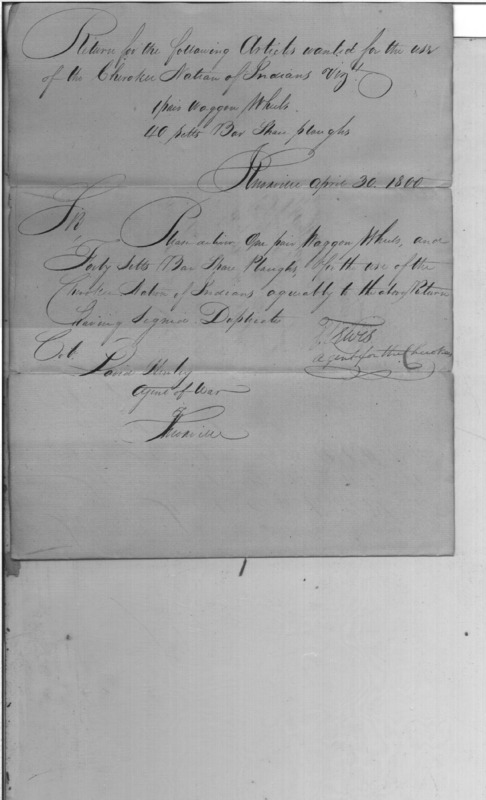 Return for the following Articls wanted for the use
of the Cherokee Nation of Indians Vizt.
1 pair Waggon Wheels.
40 Setts Bar Shear ploughs
Knoxville April 30. 1800
Sir
Please deliver One pair Waggon Wheels, and
Forty Setts Bar Shear Ploughs for the use of the
Cherokee Nation of Indians agreeably to the above Return
having Signed Duplicate
T. Lewis
Agent for the Cherokees
Col.
David Henley
Agent of War
Knoxville